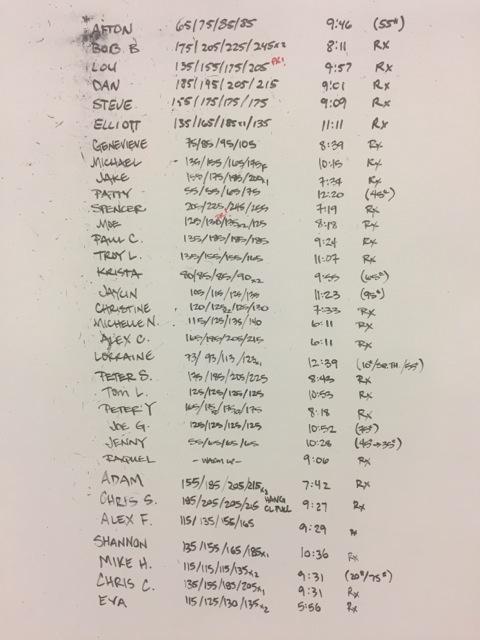 AFTON 65/75/85/85 9:46 (55#)
BOB B 175/205/225/245x2 8:11 Rx
LOU 135/155/175/205 PR! 9:57 Rx
DAN 185/195/205/215 9:01 Rx
STEVE 155/175/175/175 9:09 Rx
ELLIOTT 135/165/185x1/135 11:11 Rx
GENEVIEVE 75/85/95/105 8:39 Rx
MICHAEL 135/155/165/175F 10:15 Rx
JAKE 155/175/185/205x1 7:34 Rx
PATTY 55/55/65/75 12:20 (45#)
SPENCER 205/225/245/255 7:19 Rx
MOE 125/130/135x2/125 8:18 Rx
PAUL C. 135/185/185/185 9:24 Rx
TROY L. 135/155/155/165 11:07 Rx
KRISTA 80/85/85/90x2 9:55 (65#)
JAYLIN 105/115/125/135 11:23 (95#)
CHRISTINE 120/125/125/130 7:33 Rx
MICHELLE N. 115/125/135/140 6:11 Rx
ALEX O. 165/185/205/215 6:11 Rx
LORRAINE 73/93/113/123x1 12:39
PETER S. 175/185/205/225 8:45 Rx
TOM L. 125/125/125/125 10:53 Rx
PETER Y 8:18 Rx
JOE G. 125/125/125/125 10:52 (75#)
JENNY 55/65/65/65 10:28 (45→35#)
RAQUEL - WARM UP - 9:06 Rx
ADAM 155/185/205/215x2 7:42 Rx
CHRIS S. 185/205/205/215 HANG CL PULL 9:27 Rx
ALEX F. 115/135/155/165 9:29 Rx
SHANNON 135/155/165/185x1 10:36 Rx
MIKE H. 115/115/115/135x2 9:31 (20#/75#)
CHRIS C. 135/155/185/205x1 9:31 Rx
EVA 115/125/130/135x2 5:56 Rx